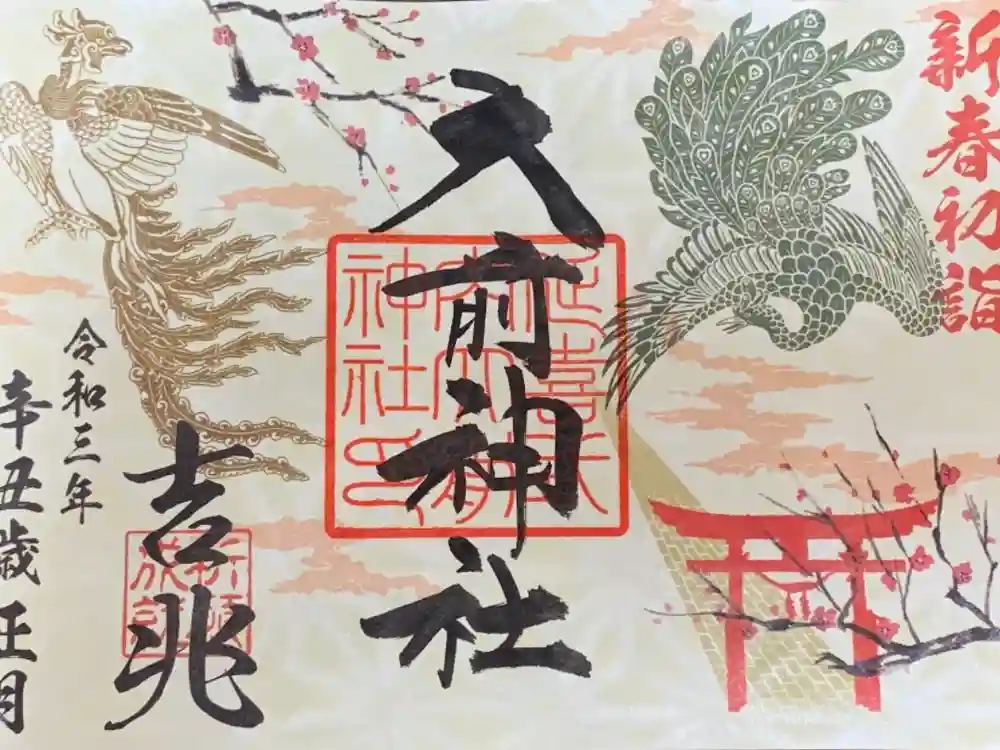 新春初詣
大前神社
延喜式
内大前
神社印
吉兆
令和三年
辛丑歳正月